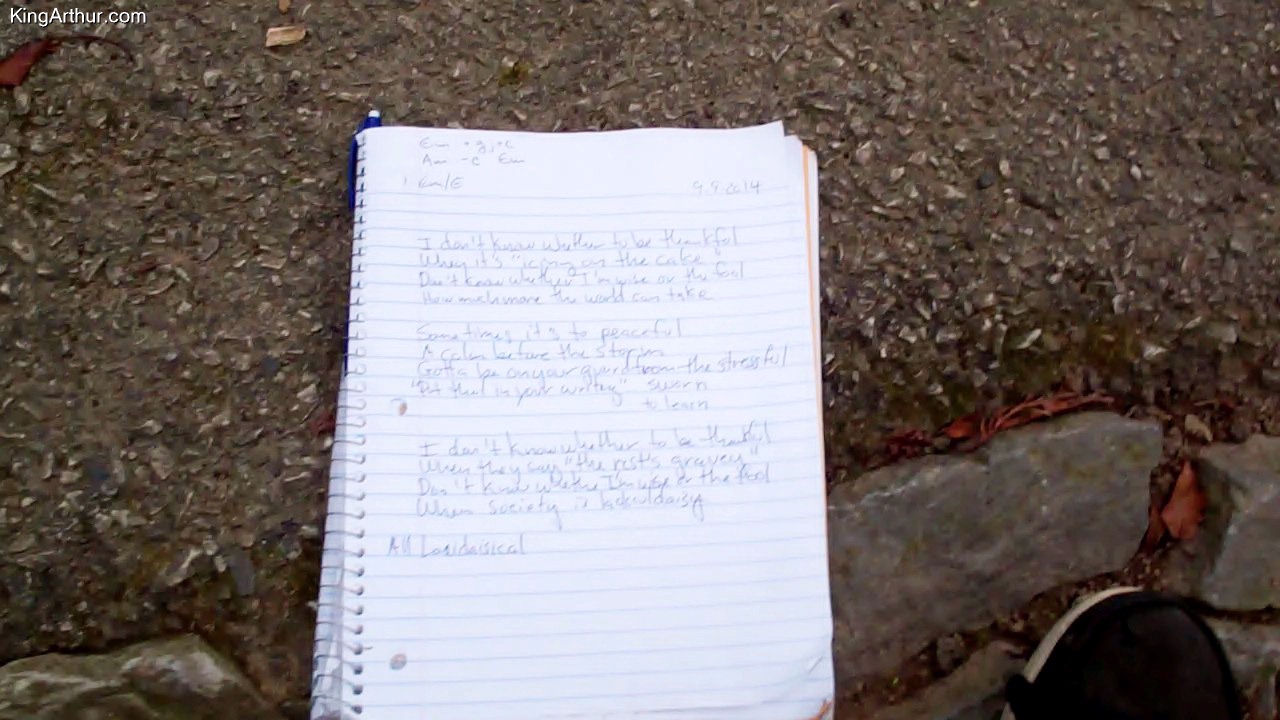 KingArthur.com
Em
Am - c Em
Em/E
9.9.2014
I don't know whether to be thankful
When it's "icing on the cake"
Don't know whether I'm wise or the fool
How much more the world can take
Sometimes it's to peaceful
A calm before the storm
Gotta be on your guard from the stressful
"Put that in your writing" sworn
to learn
I don't know whether to be thankful
When they say "the rest's gravey"
Don't know whethe I'm wise or the fool
When society is
All